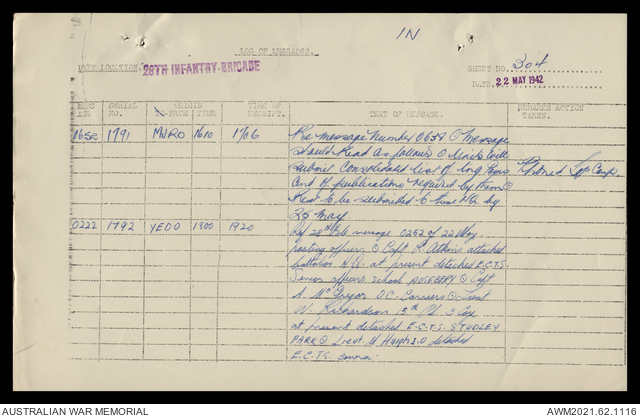 IN
LOG OF MESSAGES.
UNIT LOCATION. 28TH INFANTRY BRIGADE
SHEET NO. 304
DATE. 22 MAY 1942
SERIAL NO. ORIGIN FROM TIME TIME OF RECEIPT. TEXT OF MESSAGE. REMARKS ACTION TAKEN.
1791 MURO 1610 1706 Re message Number 0659 O Message
should Read as follows O Units will
submit Consolidated list of Trng
and of publications required by them O
to be submitted to this HQ by
25 May.
Phoned
0222 1792 YEDO 1900 1920 28th message 0252 of 22 May
posting officers O Capt R. Atkins attached
battalion H.Q. at present detached E.C.T.S.
Senior officers school ROSEBERY O Capt
A. McGregor O.C. Carriers O Lieut
W. Richardson 15th Pl. C Coy
at present detached E.C.T.S. STUDLEY
PARK O Lieut detached
E.C.T.S. cowra.
AUSTRALIAN WAR MEMORIAL
AWM2021.62.1116